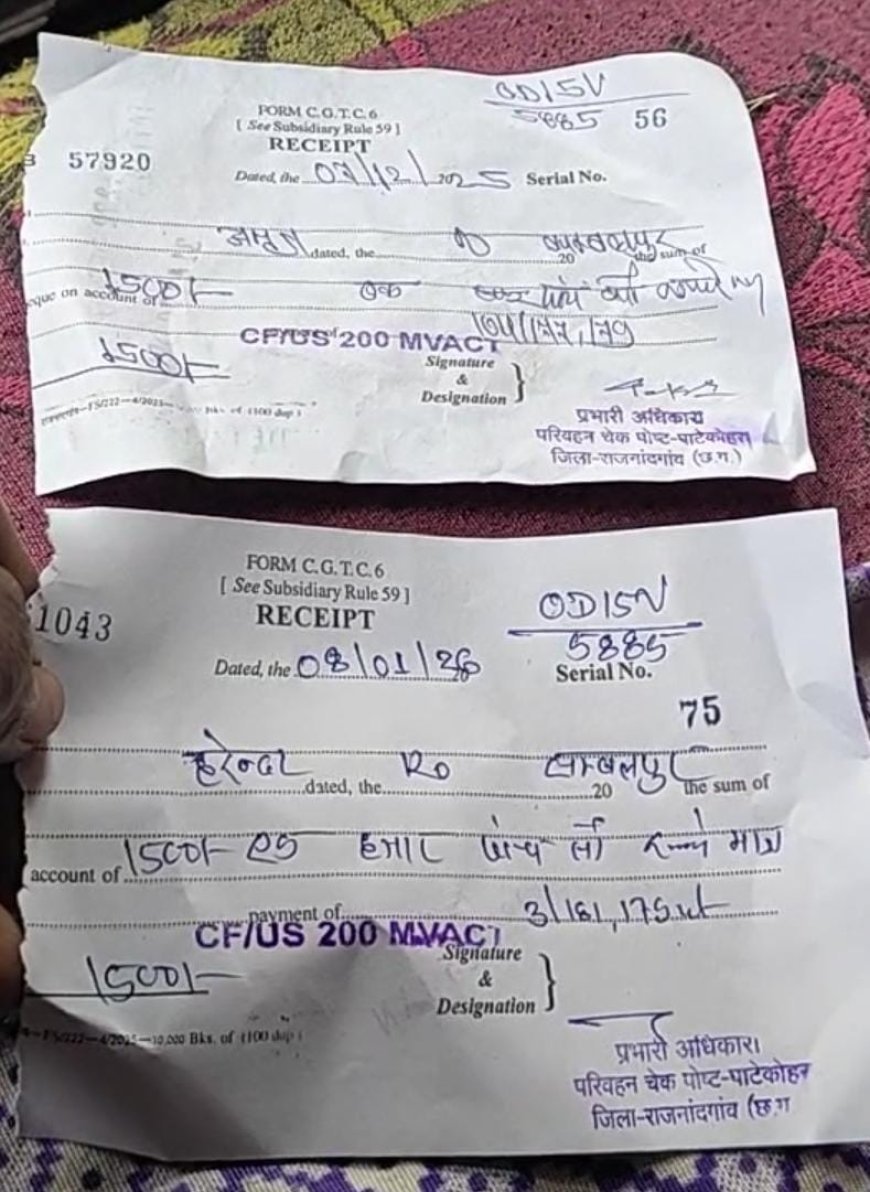 FORM C.G.T.C.6
OD15V
5885
56
[ See Subsidiary Rule 59 ]
RECEIPT
57920
Dated, the 07/12/2025 Serial No.
dated, the 20 the sum of
1500/- एक
eque on account of
CF/US 200 MVACT
1500/-
Signature
&
Designation
प्रभारी अधिकारी
परिवहन चेक पोष्ट-पाटेकोहरा
जिला-राजनांदगांव (छ.ग.)
FORM C.G.T.C.6
[ See Subsidiary Rule 59 ]
OD15V
5885
1043
RECEIPT
Dated, the 08/01/26 Serial No.
75
हरेन्दर R० सम्बलपुर
dated, the 20 the sum of
1500/- एक हजार पांच सौ रूपये मात्र
account of
payment of 3/181,
CF/US 200 MVACT
1500/-
Signature
&
Designation
4/2025—10,000 Bks. of (100 dup)
प्रभारी अधिकारी
परिवहन चेक पोष्ट-पाटेकोहरा
जिला-राजनांदगांव (छ.ग